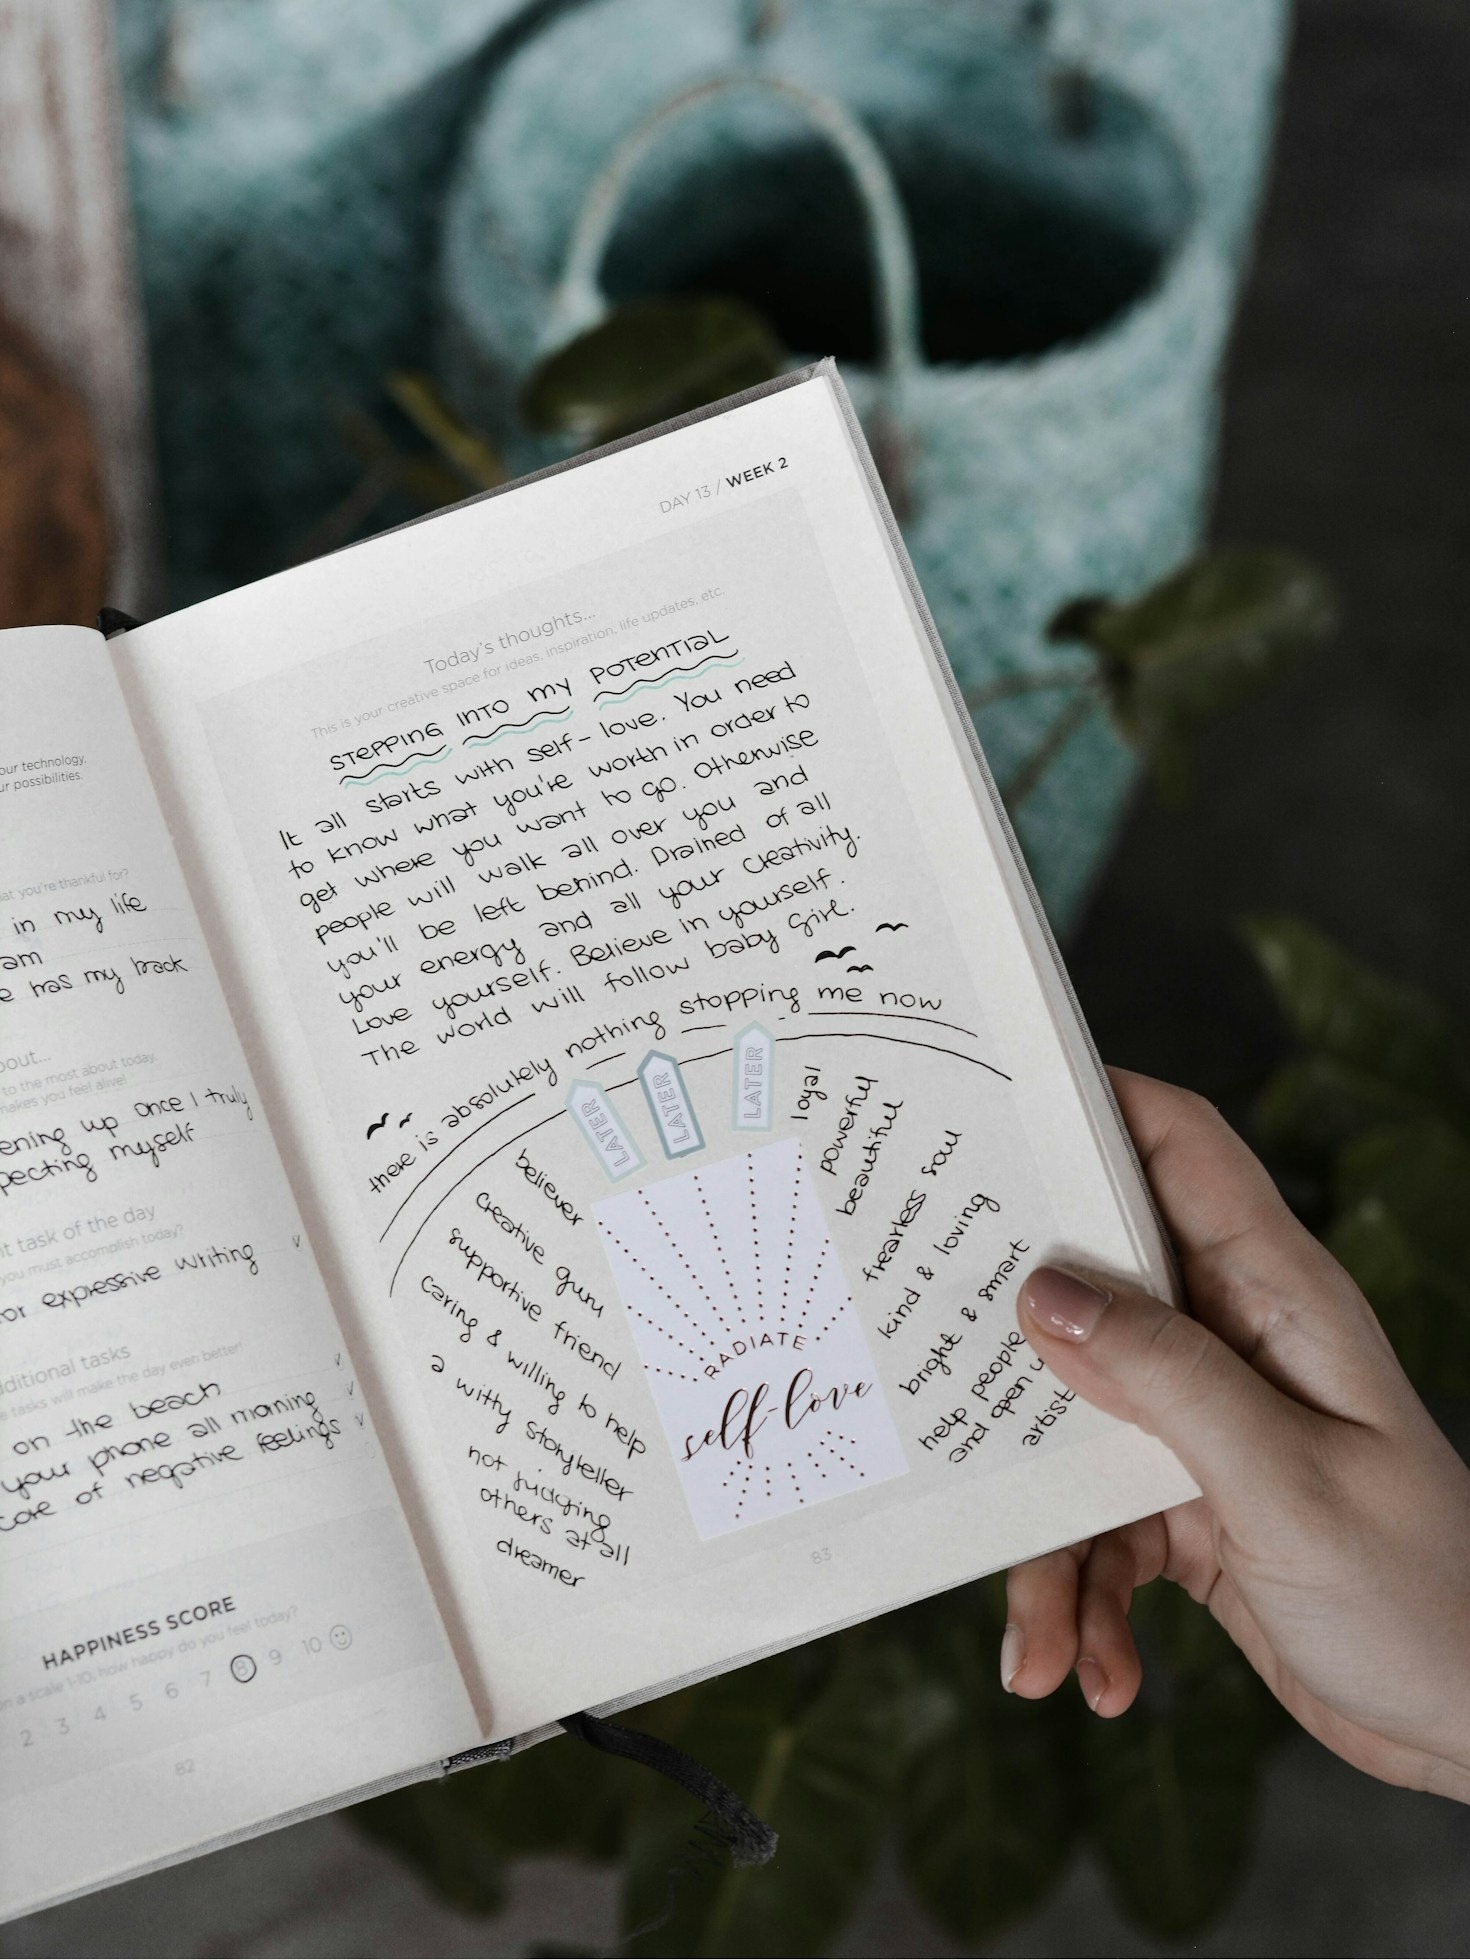 our technology,
ur possibilities.
you're thankful for?
in my life
am
has my back
to the most about today,
makes you feel alive!
up once I truly
myself
task of the day
you must accomplish today?
or expressive writing
tasks
tasks will make the day even better
on the beach
your phone all morning
of negative feelings
HAPPINESS SCORE
on a scale 1-10, how happy do you feel today?
2 3 4 5 6 7 8 9 10
82
DAY 13 / WEEK 2
Today's thoughts...
This is your creative space for ideas, inspiration, life updates, etc.
STEPPING INTO MY POTENTIAL
It all starts with self-love. You need
to know what you're worth in order to
get where you want to go. Otherwise
people will walk all over you and
you'll be left behind. Drained of all
your energy and all your creativity.
Love yourself. Believe in yourself.
The world will follow baby girl.
there is absolutely nothing stopping me now
LATER
LATER
LATER
believer
creative guru
supportive friend
caring & willing to help
a witty storyteller
not judging
others at all
dreamer
RADIATE
self-love
loyal
powerful
beautiful
fearless soul
kind & loving
bright & smart
help people
and open
artist
83